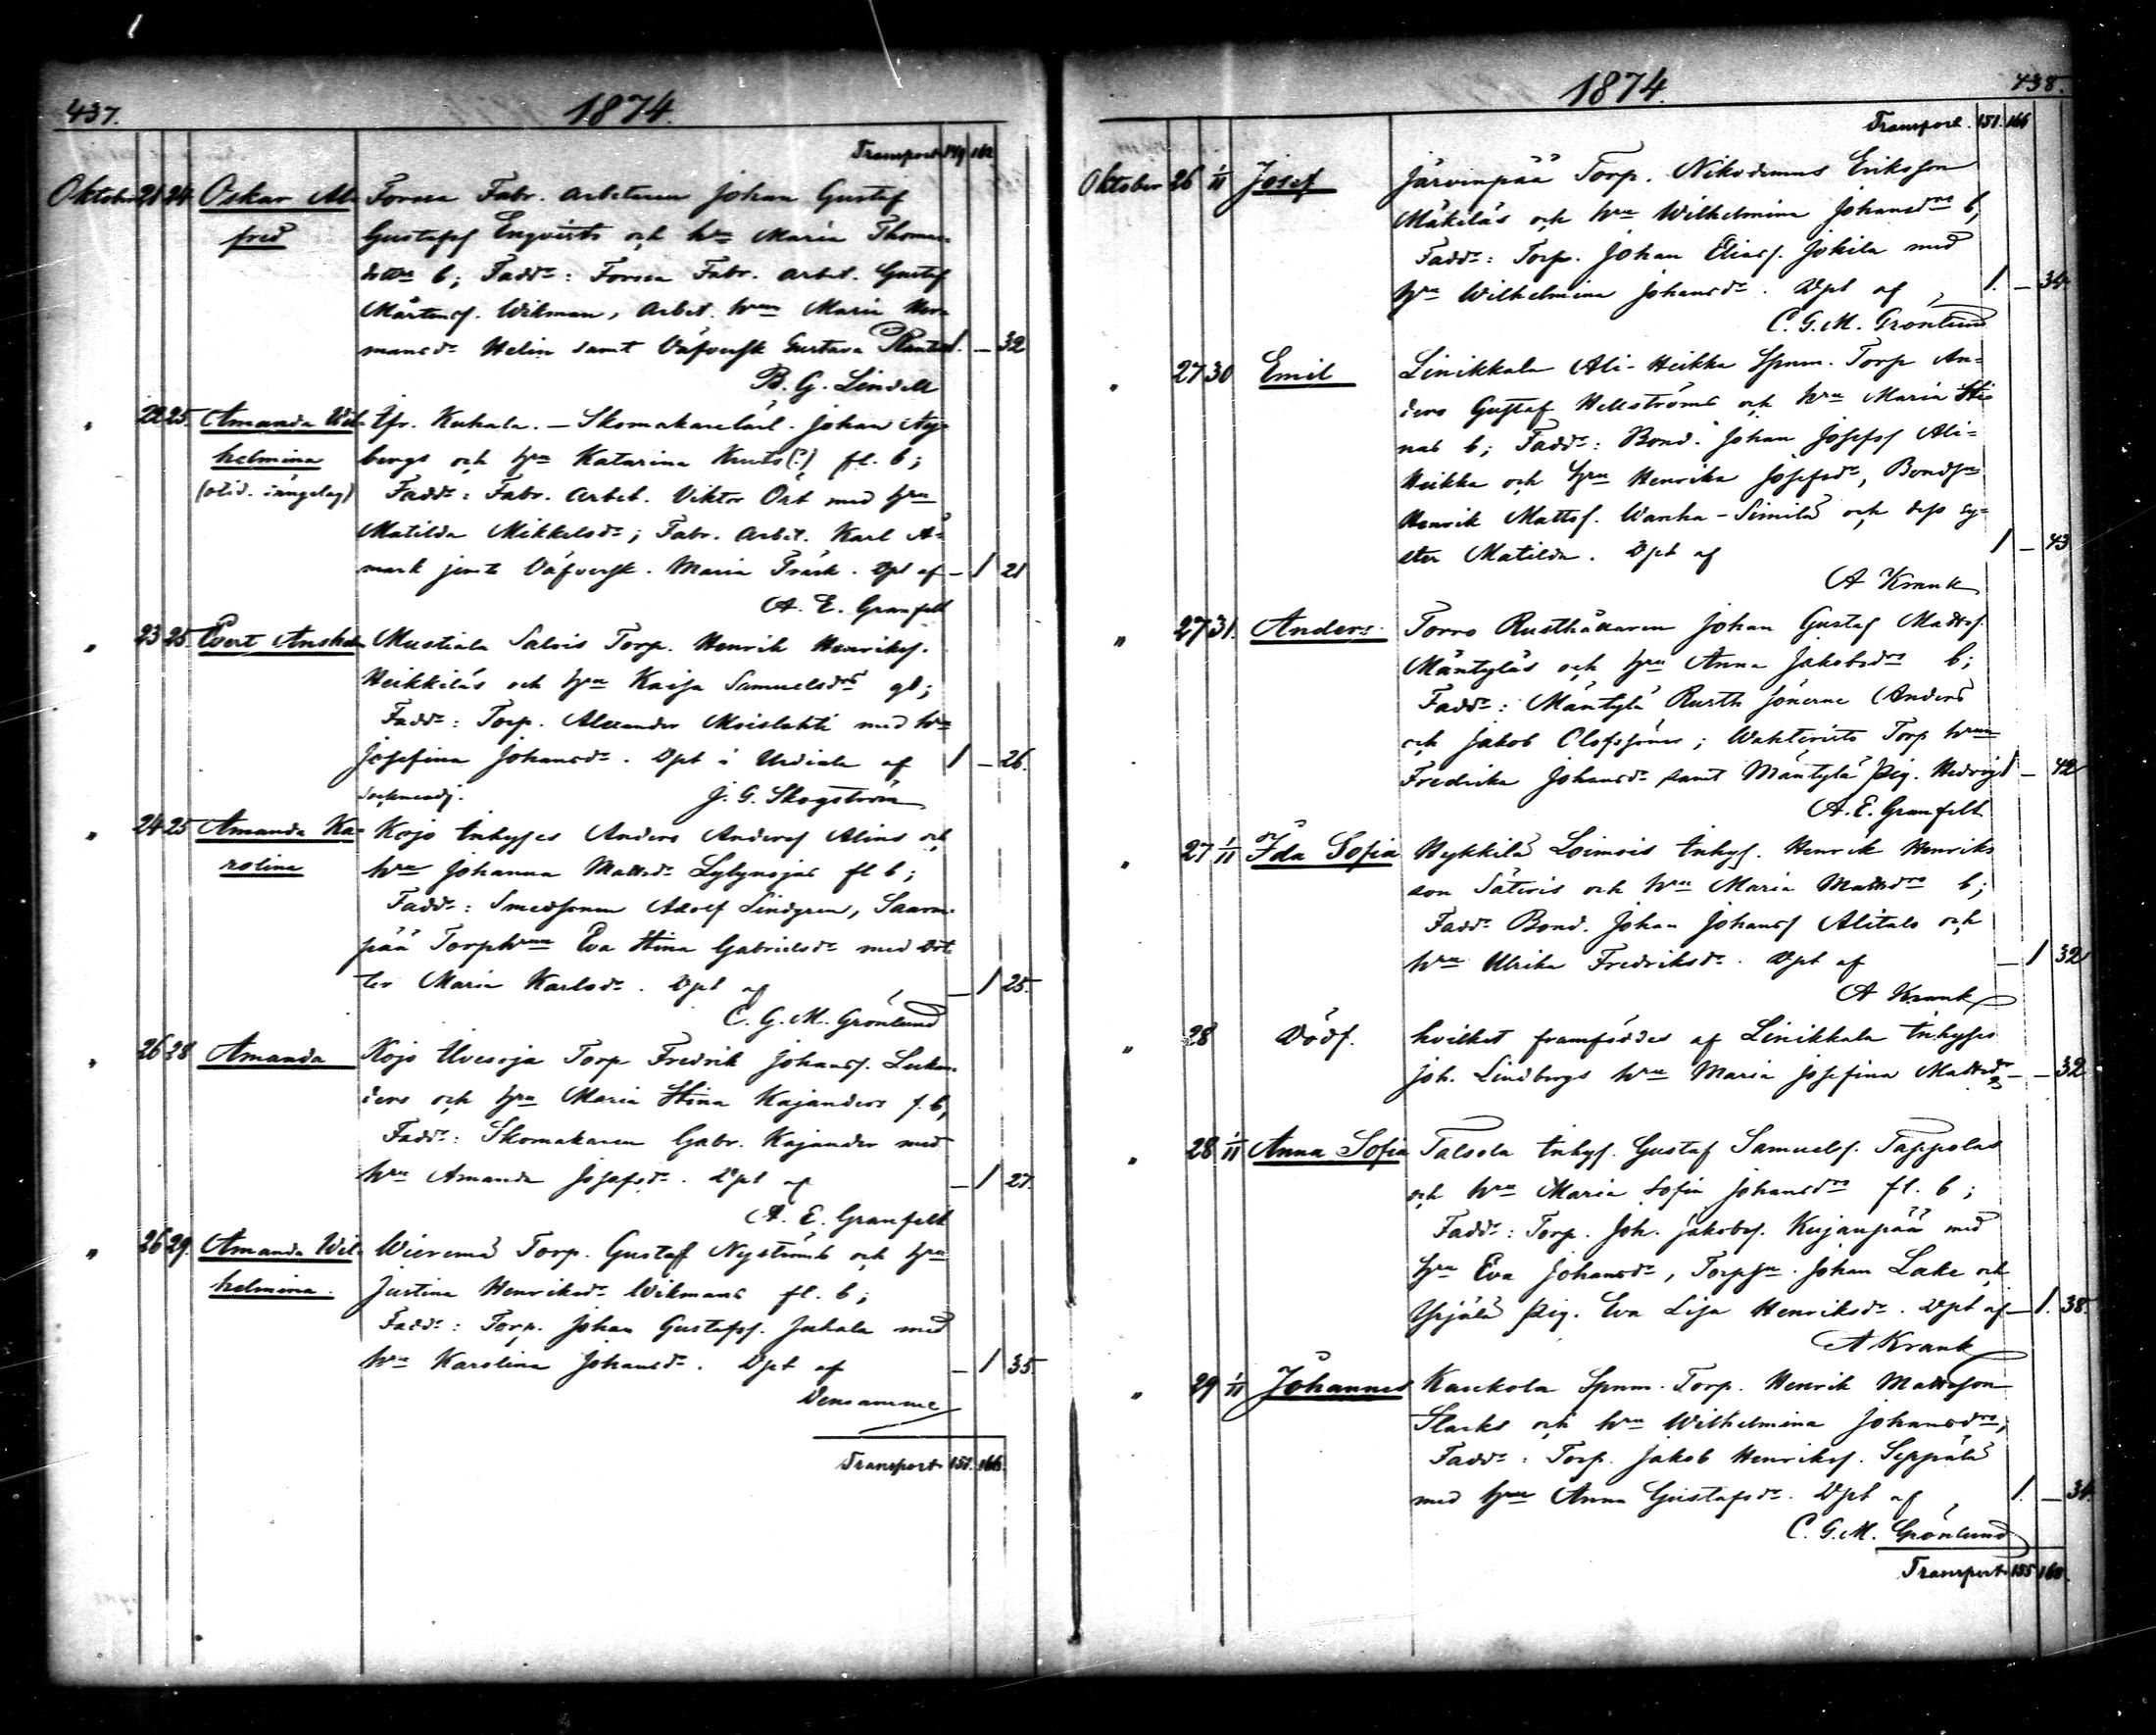 437. 1874.
Transport 149 162
Oktober 21 24 Oskar Al- Forssa Fabr. arbetaren Johan Gustaf
fred Gustafss Enqvists och hru Maria Thomas
dottrs b; Faddr: Forssa Fabr. arbet. Gustaf
Mårtenss. Wikman, Arbet. hrun Maria Her-
mansdr Helin samt Väfversk Gustava 1. — 32
B. G. Lindell
" 22 25. Amanda Wil- Yfr. Kuhala. — Skomakarelärl. Johan Ny-
helmina bergs och hru Katarina Knuts(?) fl. b;
Faddr: Fabr. arbet. Viktor Öst med hru
Matilda Mikkelsdr; Fabr. arbet. Karl Å-
mark jemte Väfversk. Maria Träsk. Dpt af — 1 21
A. E. Granfelt
" 23 25. Evert Anshelm Mustiala Salois Torp. Henrik Henrikss.
Heikkiläs och hru Kaisa Samuelsdrs gb;
Faddr: Torp. Alexander Moislahti med hru
Josefina Johansdr. Dpt i Urdiala af 1 — 26.
J. G. Skogström
" 24 25 Amanda Ka- Kojo Inhyses Anders Anderss Alins och
rolina hru Johanna Mattsdr Lylynojas fl b;
Faddr: Smedsonen Adolf Lindgren, Saaren-
pää Torphrun Eva Stina Gabrielsdr med dot-
ter Maria Karlsdr. Dpt af — 1 25.
C. G. M. Grönlund
" 26 28 Amanda Kojo Uvesoja Torp Fredrik Johanss.
ders och hru Maria Stina Kajanders f. b,
Faddr: Skomakaren Gabr. Kajander med
hru Amanda Josefsdr. Dpt af — 1 27.
A. E. Granfelt
" 26 29. Amanda Wil- Wieremä Torp. Gustaf Nyströms och hru
helmina. Justina Henriksdr Wikmans fl. b;
Faddr: Torp. Johan Gustafss. Juhala med
hru Karolina Johansdr. Dpt af — 1 35.
Densamme
Transport 151. 166.
1874. 438.
Transport. 151. 166
Oktober 26 1/11 Josef Järvenpää Torp. Nikodemus Eriksson
Mäkiläs och hru Wilhelmina Johansdrs b,
Faddr: Torp. Johan Eliass. Jokila med
hru Wilhelmina Johansdr. Dpt af 1. — 34.
C. G. M. Grönlund
" 27 30 Emil Linikkala Ali-Heikka Spnm. Torp An-
ders Gustaf Hellströms och hru Maria Sti-
nas b; Faddr: Bond. Johan Josefss Ali-
Heikka och hru Henrika Josefsdr, Bondsn
Henrik Mattss. Wanha-Similä och dess sy-
ster Matilda. Dpt af 1 — 43
A Krank
" 27 31. Anders. Torro Rusthållaren Johan Gustaf Mattss.
Mäntyläs och hru Anna Jakobsdrs b;
Faddr: Mäntylä Rusth sönerne Anders
och Jakob Olofssöner; Torp hrun
Fredrika Johansdr samt Mäntylä pig. Hedvig 1 — 42
A. E. Granfelt
" 27 1/11 Ida Sofia Hykkilä Loimois Inhys. Henrik Henriks
son Säteris och hru Maria Mattsdrs b;
Faddr Bond. Johan Johanss Alitalo och
hru Ulrika Fredriksdr. Dpt af — 1 32
A Krank
" 28 Dödf. hvilket framföddes af Linikkala Inhyses
Joh. Lindbergs hru Maria Josefina Mattsdr — — 32
" 28 1/11 Anna Sofia Talsola Inhys. Gustaf Samuelss. Tappolas
och hru Maria Sofia Johansdrs fl. b;
Faddr: Torp. Joh. Jakobss. Kujanpää med
hru Eva Johansdr, Torpsn. Johan Lake och
Yrjälä pig. Eva Lisa Henriksdr. Dpt af — 1. 38.
A Krank
" 29 1/11 Johannes Kaukola Spnm. Torp. Henrik Mattsson
Slarks och hru Wilhelmina Johansdrs,
Faddr: Torp. Jakob Henrikss. Seppälä
med hru Anna Gustafsdr. Dpt af 1. — 34.
C. G. M. Grönlund
Transport 155 168.